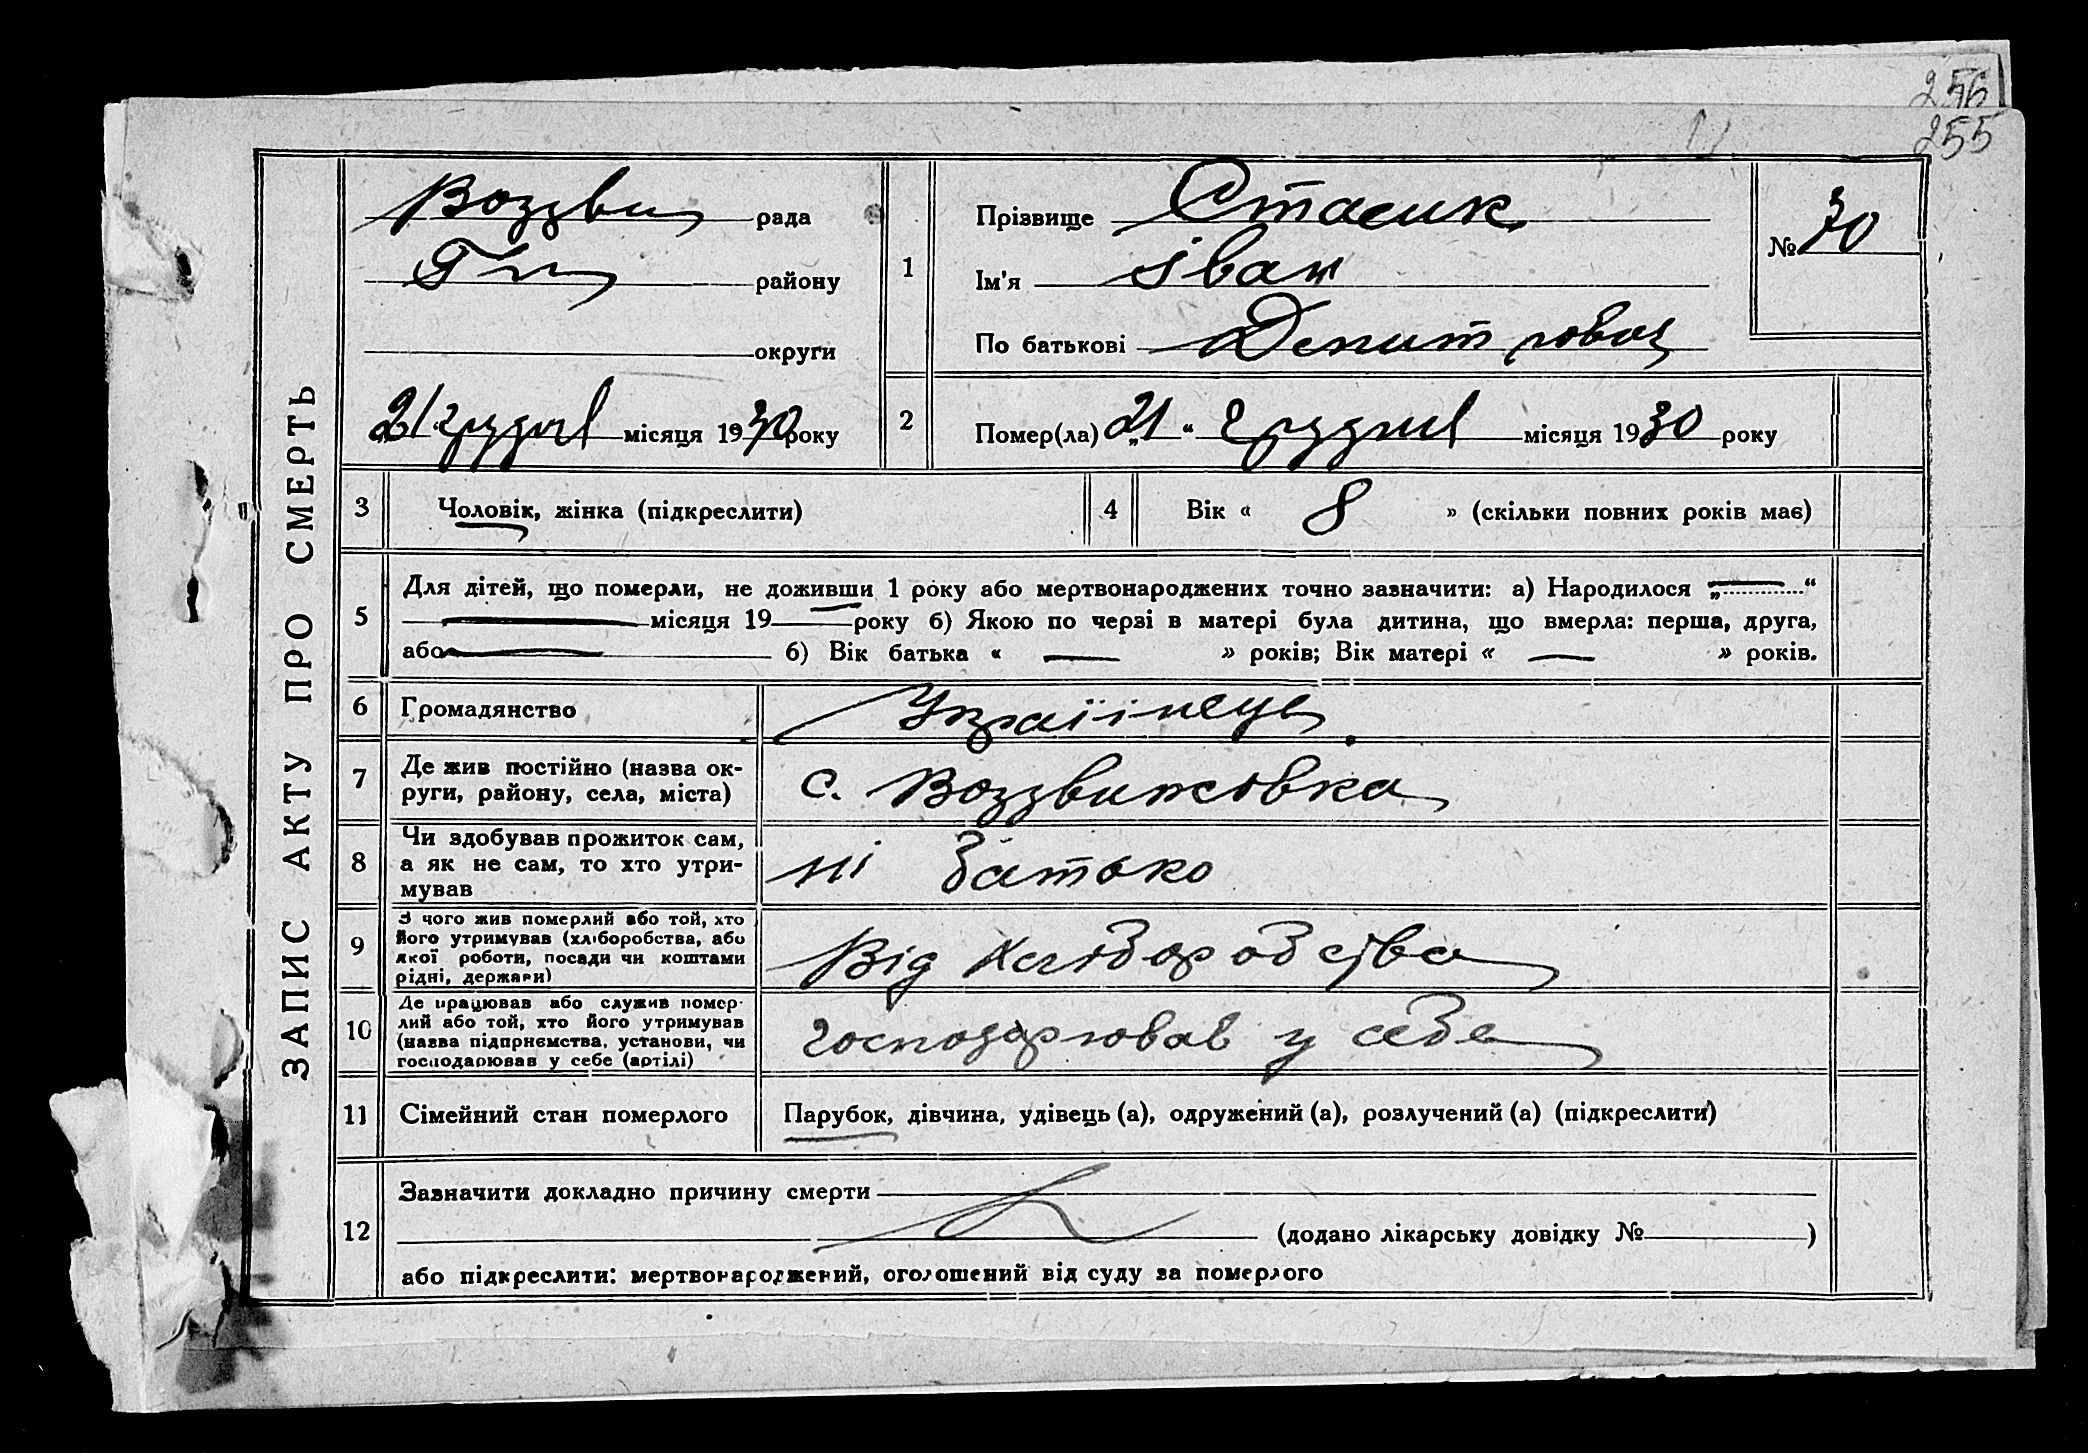 256
255
ЗАПИС АКТУ ПРО СМЕРТЬ
Воздви рада
району
округи
21 грудня місяця 1930 року
1
Прізвище Стасик
Ім'я Іван
По батькові
№ 30
2
Помер(ла) „21“ грудня місяця 1930 року
3
Чоловік, жінка (підкреслити)
4
Вік « 8 » (скільки повних років має)
5
Для дітей, що померли, не доживши 1 року або мертвонароджених точно зазначити: а) Народилося „ “
місяця 19 року б) Якою по черзі в матері була дитина, що вмерла: перша, друга,
або б) Вік батька « » років; Вік матері « » років.
6
Громадянство
Украіінець
7
Де жив постійно (назва ок-
руги, району, села, міста)
с. Воздвижовка
8
Чи здобував прожиток сам,
а як не сам, то хто утри-
мував
ні батько
9
З чого жив померлий або той, хто
його утримував (хліборобства, або
якої роботи, посади чи коштами
рідні, держави)
Від хліборобства
10
Де працював або служив помер-
лий або той, хто його утримував
(назва підприємства, установи, чи
господарював у себе (артілі)
господарював у себе
11
Сімейний стан померлого
Парубок, дівчина, удівець (а), одружений (а), розлучений (а) (підкреслити)
12
Зазначити докладно причину смерти
(додано лікарську довідку № )
або підкреслити: мертвонароджений, оголошений від суду за померлого